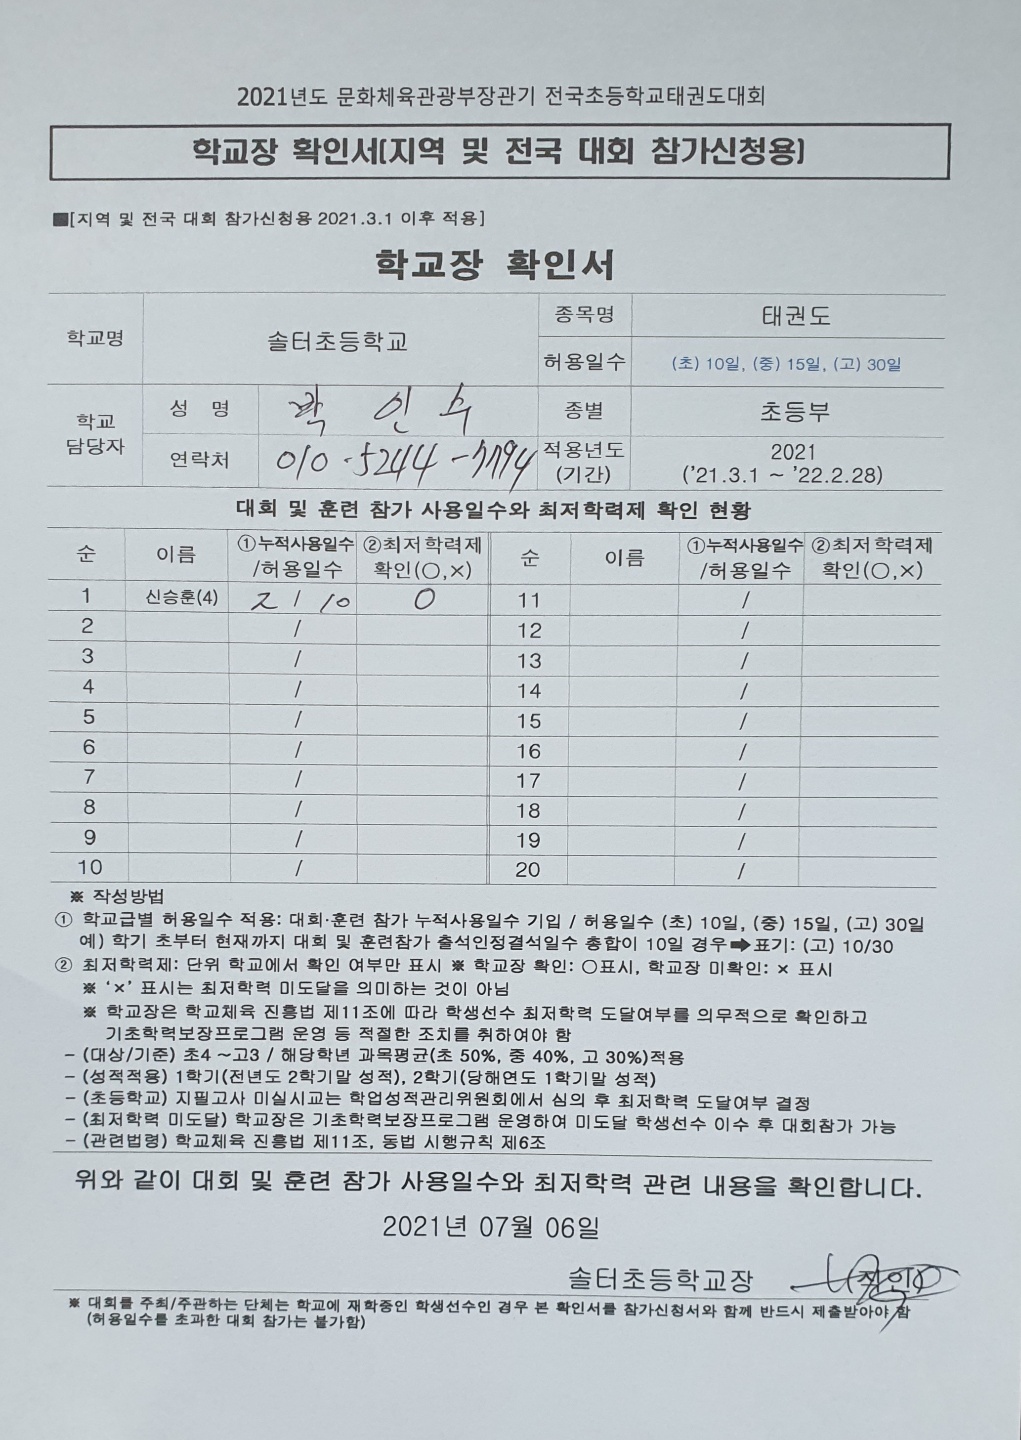 2021년도 문화체육관광부장관기 전국초등학교태권도대회
학교장 확인서(지역 및 전국 대회 참가신청용)
■[지역 및 전국 대회 참가신청용 2021.3.1 이후 적용]
학교장 확인서
학교명 솔터초등학교 종목명 태권도
허용일수 (초) 10일, (중) 15일, (고) 30일
학교 담당자 성 명 박 인 종별 초등부
연락처 010-5244-7794 적용년도 (기간) 2021 ('21.3.1 ~ '22.2.28)
대회 및 훈련 참가 사용일수와 최저학력제 확인 현황
순 이름 ①누적사용일수 /허용일수 ②최저학력제 확인(○,×) 순 이름 ①누적사용일수 /허용일수 ②최저학력제 확인(○,×)
1 신승훈(4) 2 / 10 O 11 /
2 / 12 /
3 / 13 /
4 / 14 /
5 / 15 /
6 / 16 /
7 / 17 /
8 / 18 /
9 / 19 /
10 / 20 /
※ 작성방법
① 학교급별 허용일수 적용: 대회·훈련 참가 누적사용일수 기입 / 허용일수 (초) 10일, (중) 15일, (고) 30일
예) 학기 초부터 현재까지 대회 및 훈련참가 출석인정결석일수 총합이 10일 경우➡표기: (고) 10/30
② 최저학력제: 단위 학교에서 확인 여부만 표시 ※ 학교장 확인: ○표시, 학교장 미확인: × 표시
※ '×' 표시는 최저학력 미도달을 의미하는 것이 아님
※ 학교장은 학교체육 진흥법 제11조에 따라 학생선수 최저학력 도달여부를 의무적으로 확인하고
기초학력보장프로그램 운영 등 적절한 조치를 취하여야 함
- (대상/기준) 초4 ~고3 / 해당학년 과목평균(초 50%, 중 40%, 고 30%)적용
- (성적적용) 1학기(전년도 2학기말 성적), 2학기(당해연도 1학기말 성적)
- (초등학교) 지필고사 미실시교는 학업성적관리위원회에서 심의 후 최저학력 도달여부 결정
- (최저학력 미도달) 학교장은 기초학력보장프로그램 운영하여 미도달 학생선수 이수 후 대회참가 가능
- (관련법령) 학교체육 진흥법 제11조, 동법 시행규칙 제6조
위와 같이 대회 및 훈련 참가 사용일수와 최저학력 관련 내용을 확인합니다.
2021년 07월 06일
솔터초등학교장 (직인)
※ 대회를 주최/주관하는 단체는 학교에 재학중인 학생선수인 경우 본 확인서를 참가신청서와 함께 반드시 제출받아야 함
(허용일수를 초과한 대회 참가는 불가함)